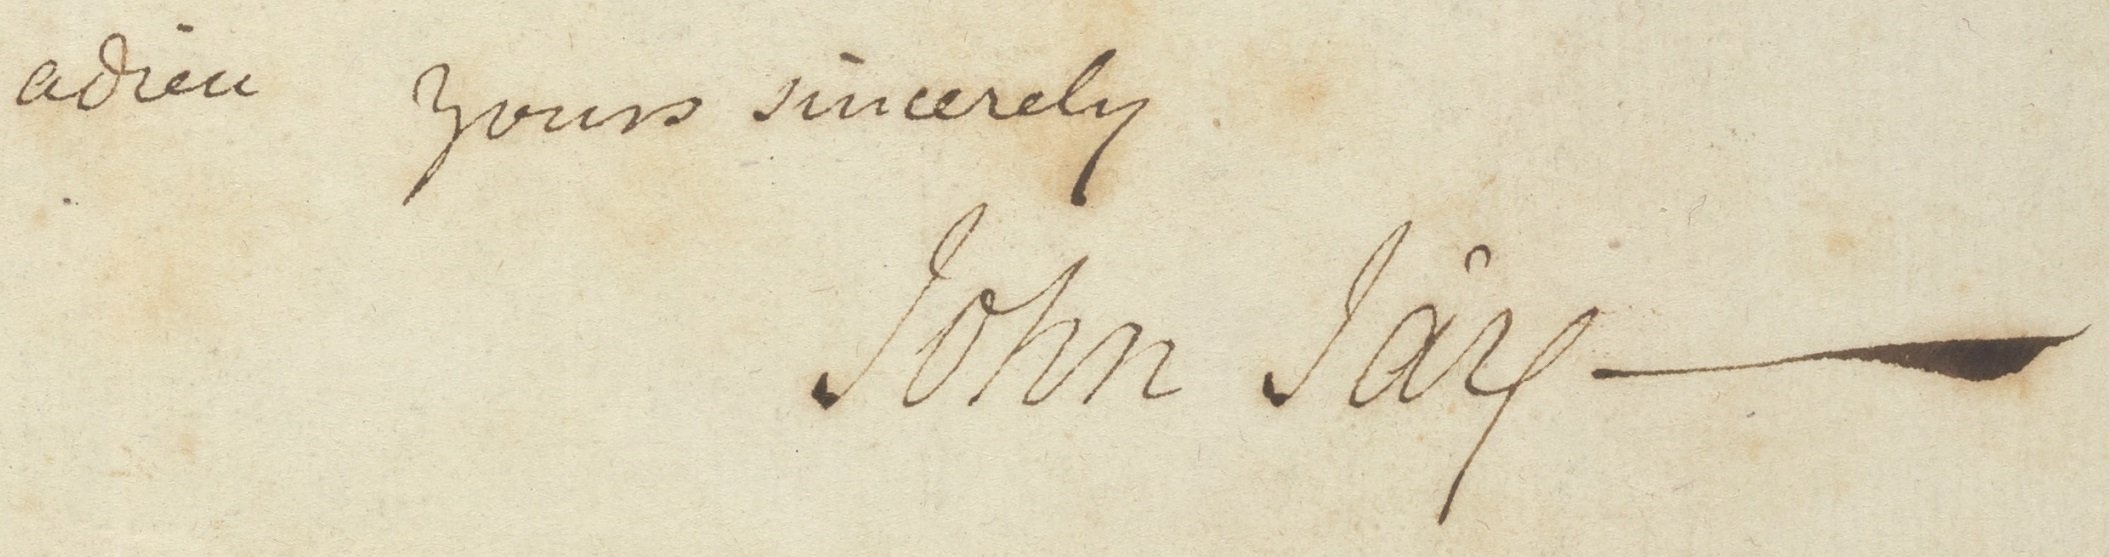 adieu Yours sincerely
John Jay